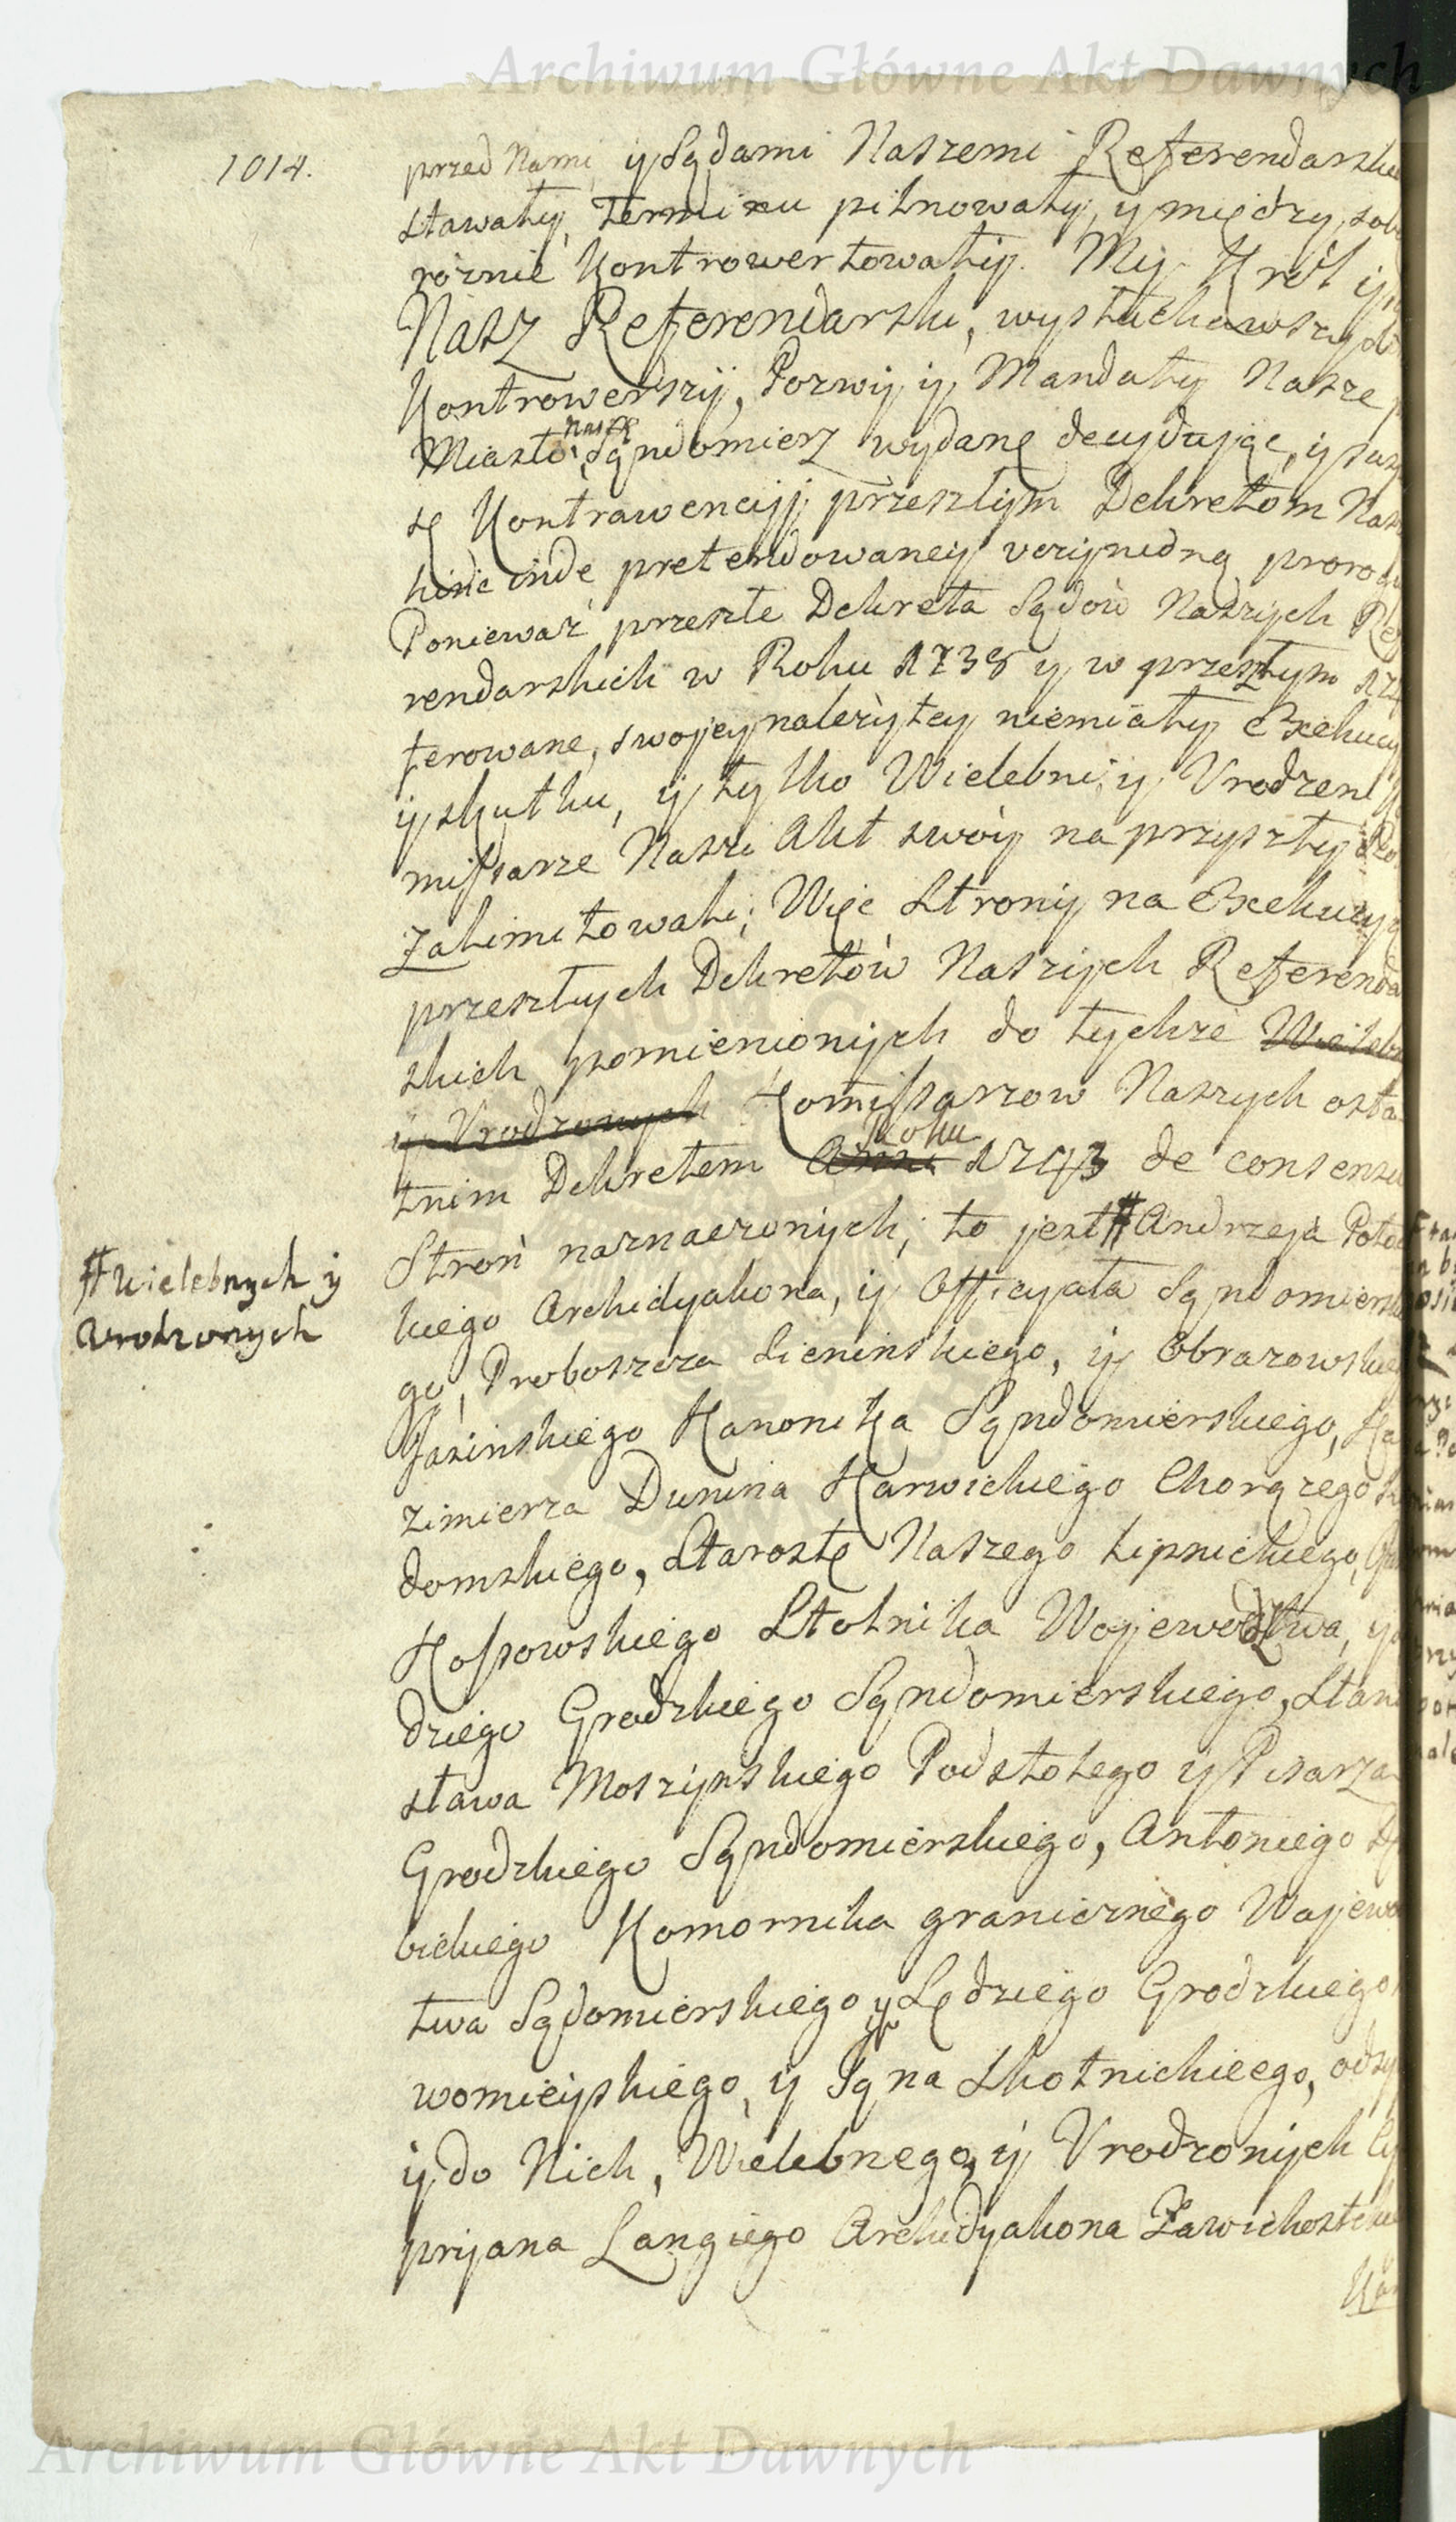 Archiwum Główne Akt Dawnych
1014.
przed Nami, y Sądami Naszemi Referendarskie
stawały, Terminu pilnowały, y między sobą
roznie Kontrowertowały. My Krol y
Nasz Referendarski, wysłuchawszy
Kontrowersyi, Pozwy y Mandaty Nasze
Miasto Nasze Sąndomierz wydane decyduiąc, y
Kontrawencyi przeszłym Dekretom
hinc inde pretendowaney
Poniewaz przeszłe Dekreta Sądow Naszych Re
rendarskich w Roku 1738 y w przeszłym
ferowane, swojey nalezytey niemiały Exekucy
y skutku, y tylko Wielebni, y Vrodzeni
missarze Nasze Akt swoy na przyszły
zalimitowali; Więc Strony na Exekucyą
przeszłych Dekretow Naszych Referenda
skich pomienionych do tychze Wielebn
y Vrodzonych Komissarzow Naszych osta
tnim Dekretem Anni Roku 1743 de consensu
Stron naznaczonych; to jest # Andrzeja Potoc
# Wielebnych y
Vrodzonych
kiego Archidyakona, y Officyała Sąndomiersk
go, Proboszcza Sieninskiego, y Obrazowskie
Jasinskiego Kanonika Sąndomierskiego, Ka
zimierza Dunina Karwickiego Chorązego
domskiego, Starostę Naszego Lipnickiego,
Kossowskiego Stolnika Wojewodztwa, y
dziego Grodzkiego Sąndomierskiego, Stani
sława Moszynskiego Podstolego y Pisarza
Grodzkiego Sąndomierskiego, Antoniego
bickiego Komornika granicznego Wojewo
twa Sądomierskiego y Sędziego Grodzkiego
womieyskiego, y Jąna Skotnickieego,
y do Nich, Wielebnego, y Vrodzonych Cy
pryana Langiego Archidyakona Zawichostsk
Archiwum Główne Akt Dawnych